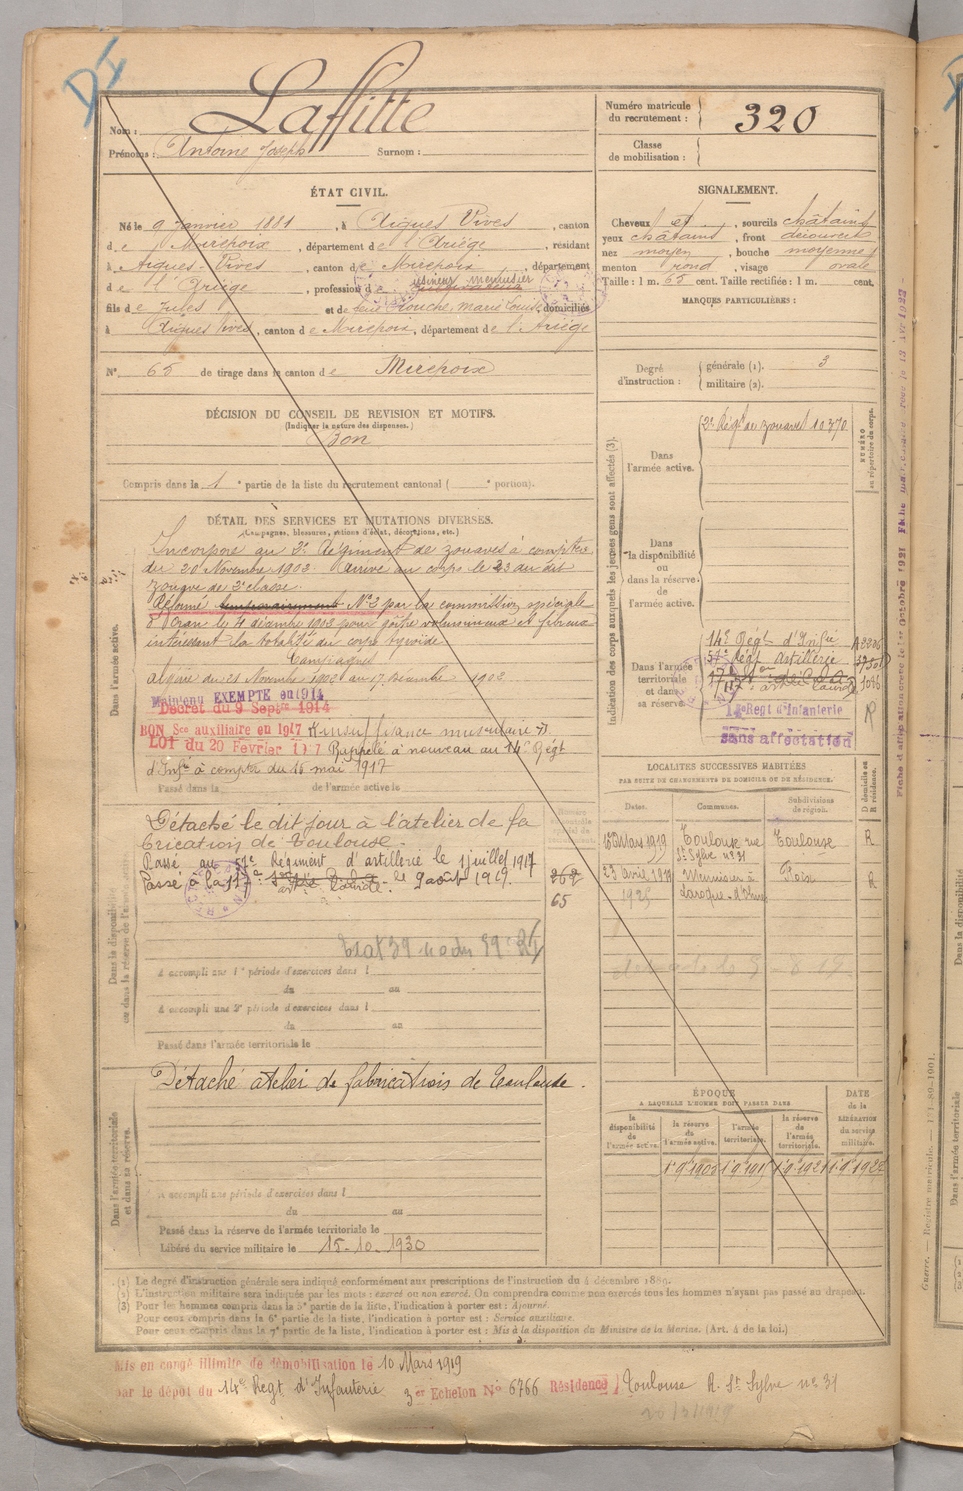 Nom : Laffitte
Prénoms : Antoine Joseph Surnom :
Numéro matricule du recrutement : 320
Classe de mobilisation :
ÉTAT CIVIL.
Né le 9 Janvier 1881, à Aigues Vives, canton
de Mirepoix, département de l'Ariège, résidant
à Aigues-Vives, canton de Mirepoix, département
de l'Ariège, profession de usineur menuisier
fils de Jules et de Marie Louise, domiciliés
à Aigues Vives, canton de Mirepoix, département de l'Ariège
N° 65 de tirage dans le canton de Mirepoix
SIGNALEMENT.
Cheveux et, sourcils châtains
yeux châtains, front découvert
nez moyen, bouche moyenne
menton rond, visage ovale
Taille : 1 m. 65 cent. Taille rectifiée : 1 m. cent.
MARQUES PARTICULIÈRES :
Degré d'instruction : générale (1). 3
militaire (2).
DÉCISION DU CONSEIL DE REVISION ET MOTIFS.
(Indiquer la nature des dispenses.)
Bon
Compris dans la 1e partie de la liste du recrutement cantonal ( e portion).
DÉTAIL DES SERVICES ET MUTATIONS DIVERSES.
(Campagnes, blessures, actions d'éclat, décorations, etc.)
Dans l'armée active.
Incorporé au 2e Régiment de zouaves à compter
du 20 Novembre 1902. Arrivé au corps le 23 du dit
zouave de 2e classe.
Réformé temporairement N° 2 par la commission spéciale
d'Oran le 4 décembre 1902 pour goître volumineux et fibreux
intéressant la totalité du corps thyroïde
Campagnes
Algérie du 21 Novembre 1902 au 17 décembre 1902
Maintenu EXEMPTE en 1914
Décret du 9 Septre 1914
BON Sce auxiliaire en 1917 Insuffisance musculaire
LOI du 20 Février 1917 Rappelé à nouveau au 14e Régt
d'Infie à compter du 16 mai 1917
Passé dans la de l'armée active le
Détaché le dit jour à l'atelier de fa
brication de Toulouse.
Passé au 57e Régiment d'artillerie le 1 juillet 1917
Passé à la 117e artie lourde. le 9 août 1919.
262
65
Dans la disponibilité ou dans la réserve de l'armée active.
A accompli une 1re période d'exercices dans l
du au
A accompli une 2e période d'exercices dans l
du au
Passé dans l'armée territoriale le
Détaché atelier de fabrications de Toulouse.
Dans l'armée territoriale et dans sa réserve.
A accompli une période d'exercices dans l
du au
Passé dans la réserve de l'armée territoriale le
Libéré du service militaire le 15-10-1930
Indication des corps auxquels les jeunes gens sont affectés (3).
NUMÉRO au répertoire du corps.
Dans l'armée active.
2e Régt de zouaves 10370
Dans la disponibilité ou dans la réserve de l'armée active.
Dans l'armée territoriale et dans sa réserve.
14e Régt d'Infie
57e Régt Artillerie
14e Regt d'Infanterie
sans affectation
R
LOCALITÉS SUCCESSIVES HABITÉES
PAR SUITE DE CHANGEMENTS DE DOMICILE OU DE RÉSIDENCE.
Dates. Communes. Subdivisions de région. D domicile ou R résidence.
Mars 1919 Toulouse rue St Sylve n° 31 Toulouse R
23 avril 1919 Menuisier à Laroque-d'Olmes Foix R
1925
ÉPOQUE
A LAQUELLE L'HOMME DOIT PASSER DANS
la disponibilité de l'armée active.
la réserve de l'armée active.
l'armée territoriale.
la réserve de l'armée territoriale.
DATE de la LIBÉRATION du service militaire.
Fiche d'affectation créée le 1er Octobre 1921
(1) Le degré d'instruction générale sera indiqué conformément aux prescriptions de l'instruction du 4 décembre 1889.
(2) L'instruction militaire sera indiquée par les mots : exercé ou non exercé. On comprendra comme non exercés tous les hommes n'ayant pas passé au drapeau.
(3) Pour les hommes compris dans la 5e partie de la liste, l'indication à porter est : Ajourné.
Pour ceux compris dans la 6e partie de la liste, l'indication à porter est : Service auxiliaire.
Pour ceux compris dans la 7e partie de la liste, l'indication à porter est : Mis à la disposition du Ministre de la Marine. (Art. 4 de la loi.)
Mis en congé illimité de démobilisation le 10 Mars 1919
par le dépôt du 14e Regt d'Infanterie 3er Echelon N° 6766 Résidence Toulouse R. St Sylve n° 31